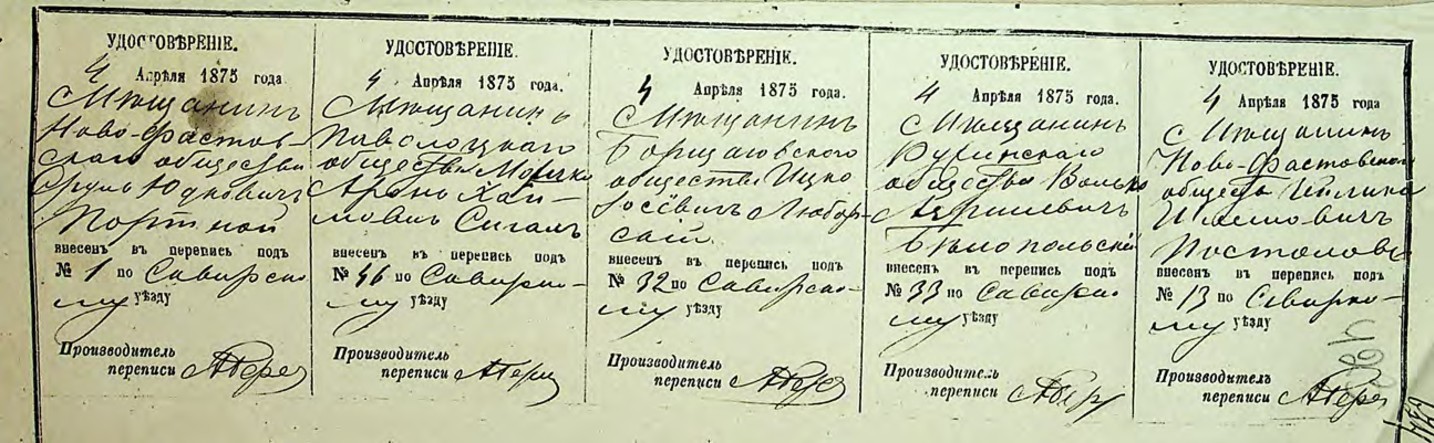 УДОСТОВѢРЕНІЕ.
4 Апрѣля 1875 года.
Мѣщанинъ
Ново-Фастов-
скаго общества
Сруль Юдковичъ
Портной
внесенъ въ перепись подъ
№ 1 по Сквирско-
му уѣзду
Производитель
переписи
УДОСТОВѢРЕНІЕ.
4 Апрѣля 1875 года.
Мѣщанинъ
Паволоцкаго
общества Мошко
Аронъ Хаи-
мовичъ Сигалъ
внесенъ въ перепись подъ
№ 46 по Сквирско-
му уѣзду
Производитель
переписи
УДОСТОВѢРЕНІЕ.
4 Апрѣля 1875 года.
Мѣщанинъ
Борщаговского
общества Ицко
Іосевичъ Любар-
скій
внесенъ въ перепись подъ
№ 32 по Сквирско-
му уѣзду
Производитель
переписи
УДОСТОВѢРЕНІЕ.
4 Апрѣля 1875 года.
Мѣщанинъ
Ружинскаго
общества Волько
Гершковичъ
Бѣлопольскій
внесенъ въ перепись подъ
№ 33 по Сквирско
му уѣзду
Производитель
переписи
УДОСТОВѢРЕНІЕ.
4 Апрѣля 1875 года
Мѣщанинъ
Ново-Фастовскаго
общества
Постоловъ
внесенъ въ перепись подъ
№ 13 по Сквирско-
му уѣзду
Производитель
переписи